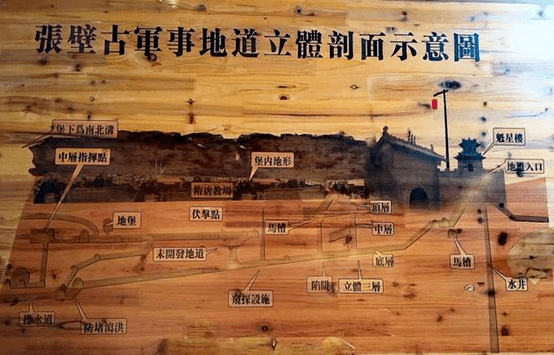 張壁古軍事地道立體剖面示意圖
堡下爲南北溝
中層指揮點
堡内地形
魁星樓
地道入口
隋唐教場
地堡
伏擊點
馬槽
頂層
中層
未開發地道
底層
馬槽
陷阱
立體三層
水井
排水道
防堵瀉洪